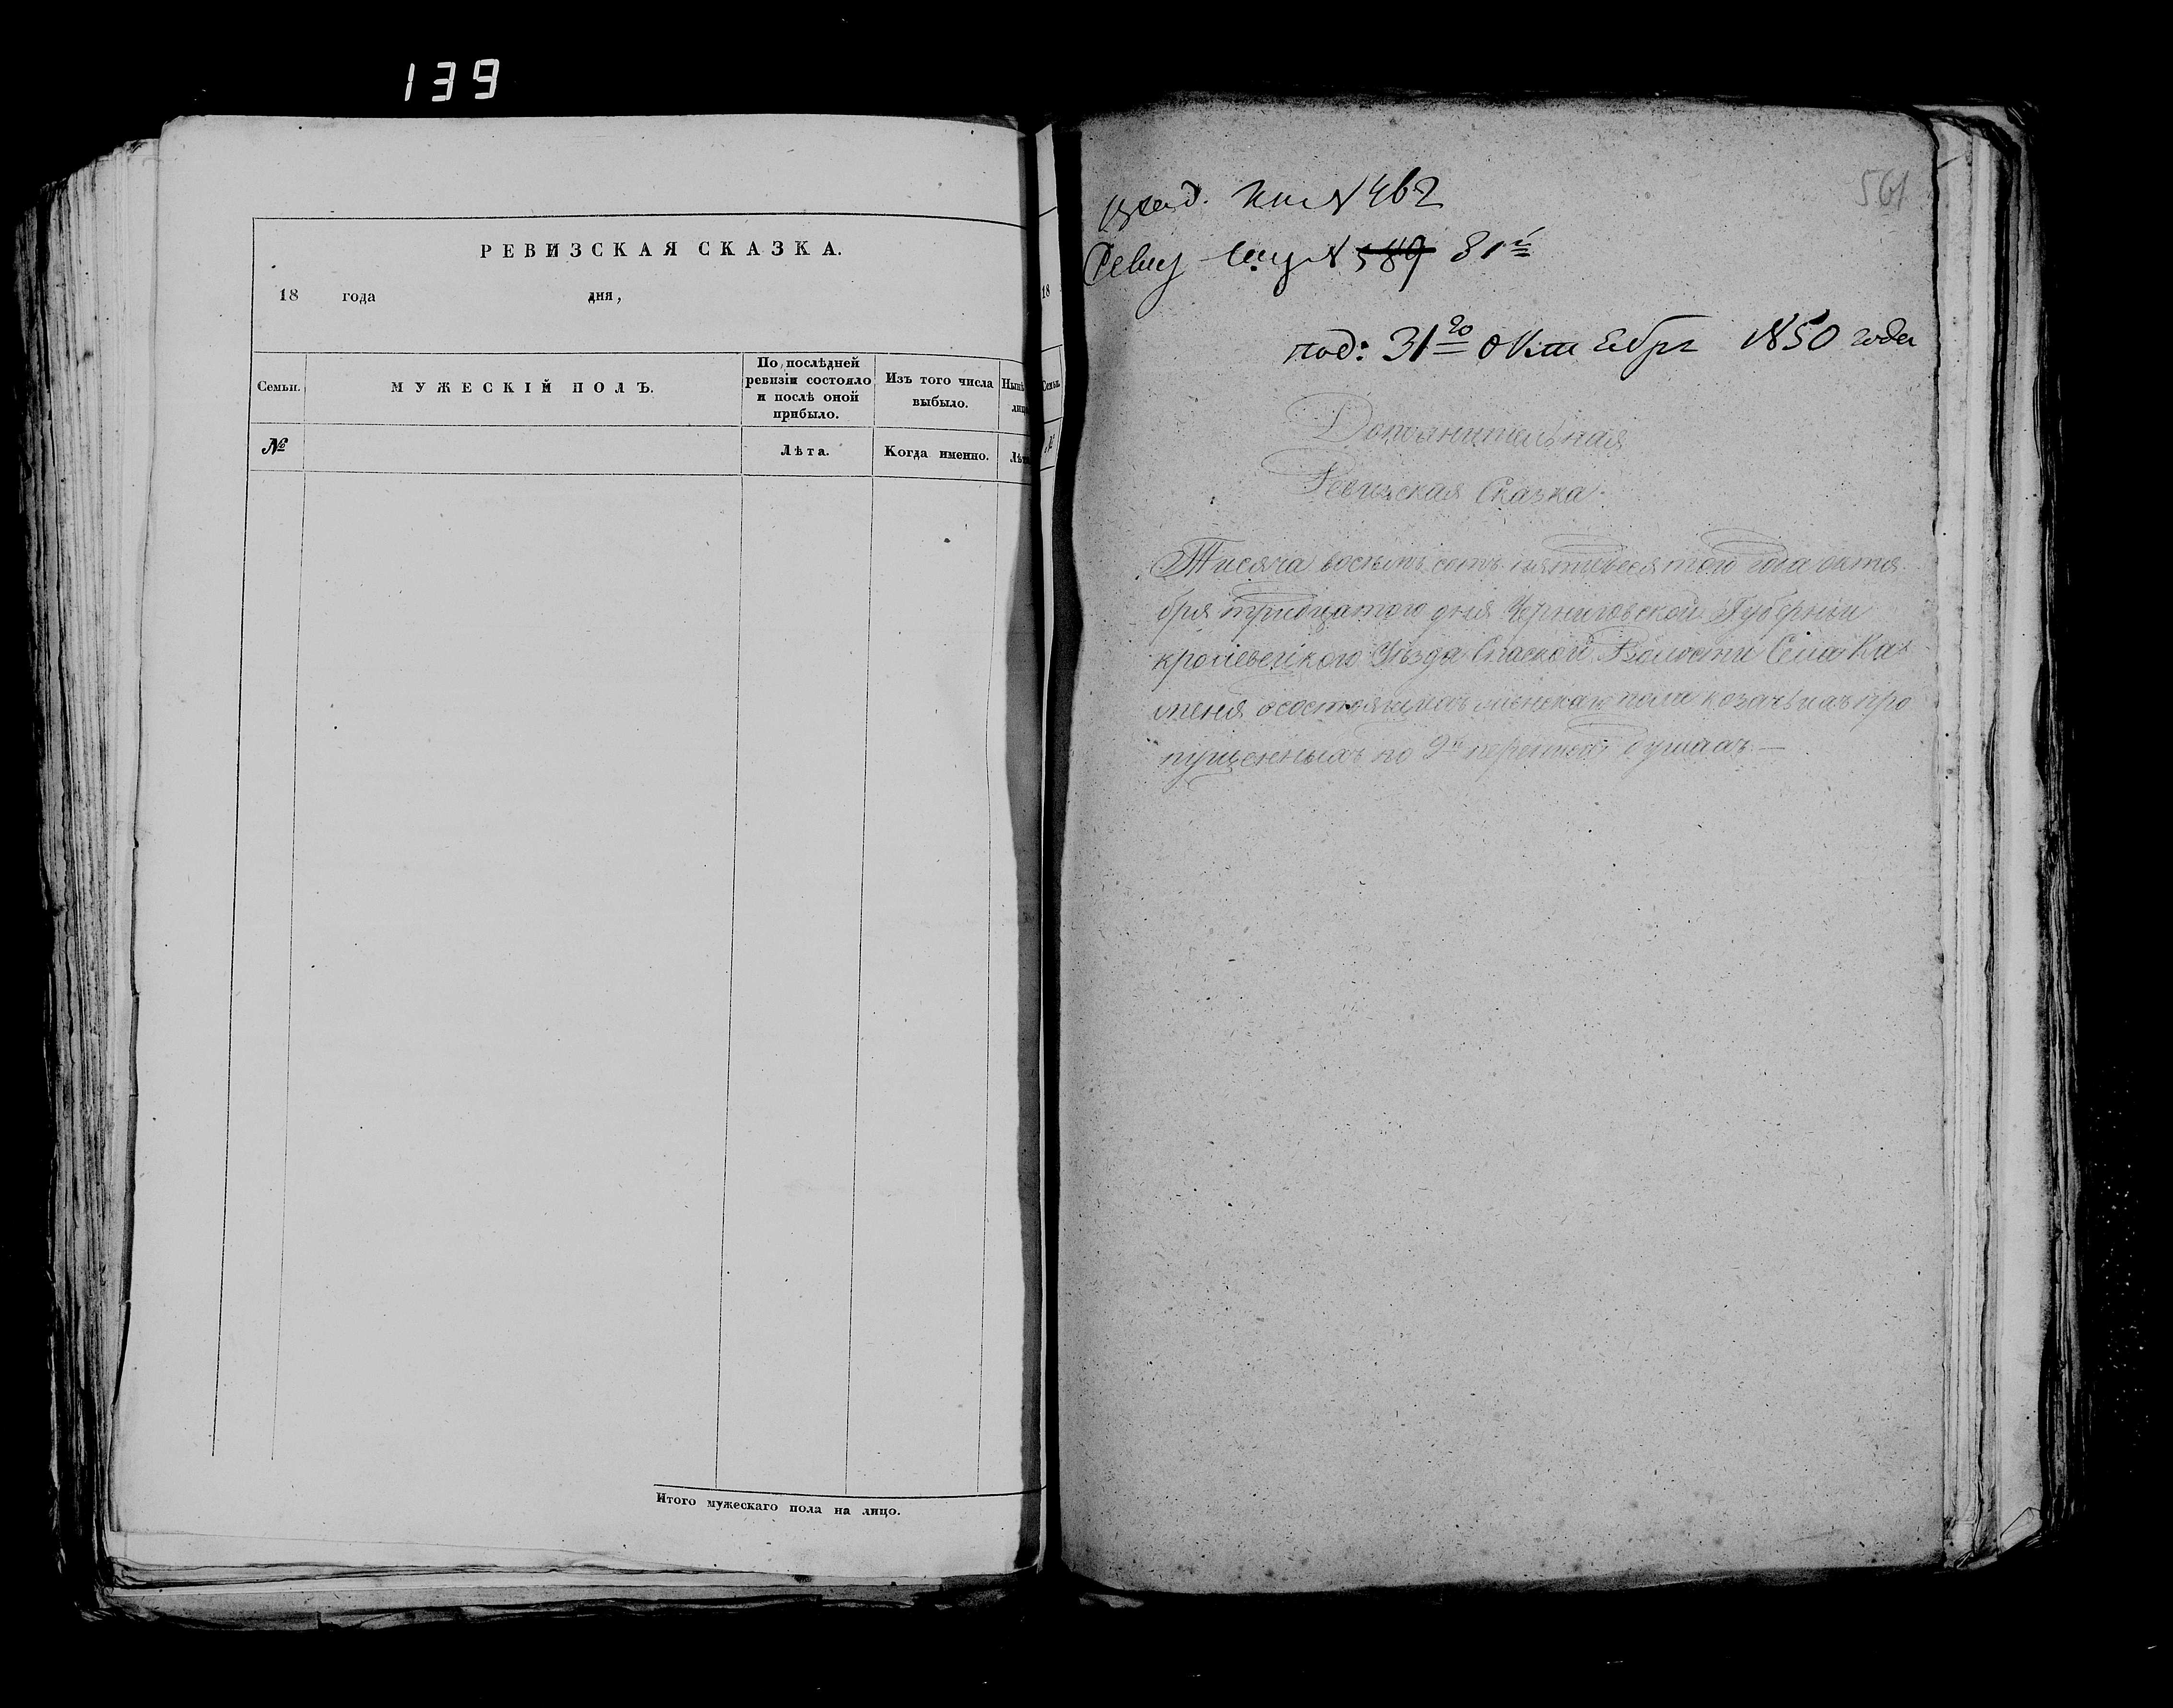 139
РЕВИЗСКАЯ СКАЗКА.
18 года дня,
Семьи.
МУЖЕСКІЙ ПОЛЪ.
По послѣдней
ревизіи состояло
и послѣ оной
прибыло.
Изъ того числа
выбыло.
№
Лѣта.
Когда именно.
Итого мужескаго пола на лицо.
18
№
561
№ 462
№ 589 81
под: 31го Октября 1850 года
Дополнительная
Ревизская Сказка
Тисяча восемь сотъ пятидесятого года октя
бря тридцатого дня Черниговской Губерніи
кролевецкого Уѣзда Спаской Волости Села Ка
меня о состоящихъ женскаго пола козачьихъ про
пущенныхъ по 9й переписи душахъ—